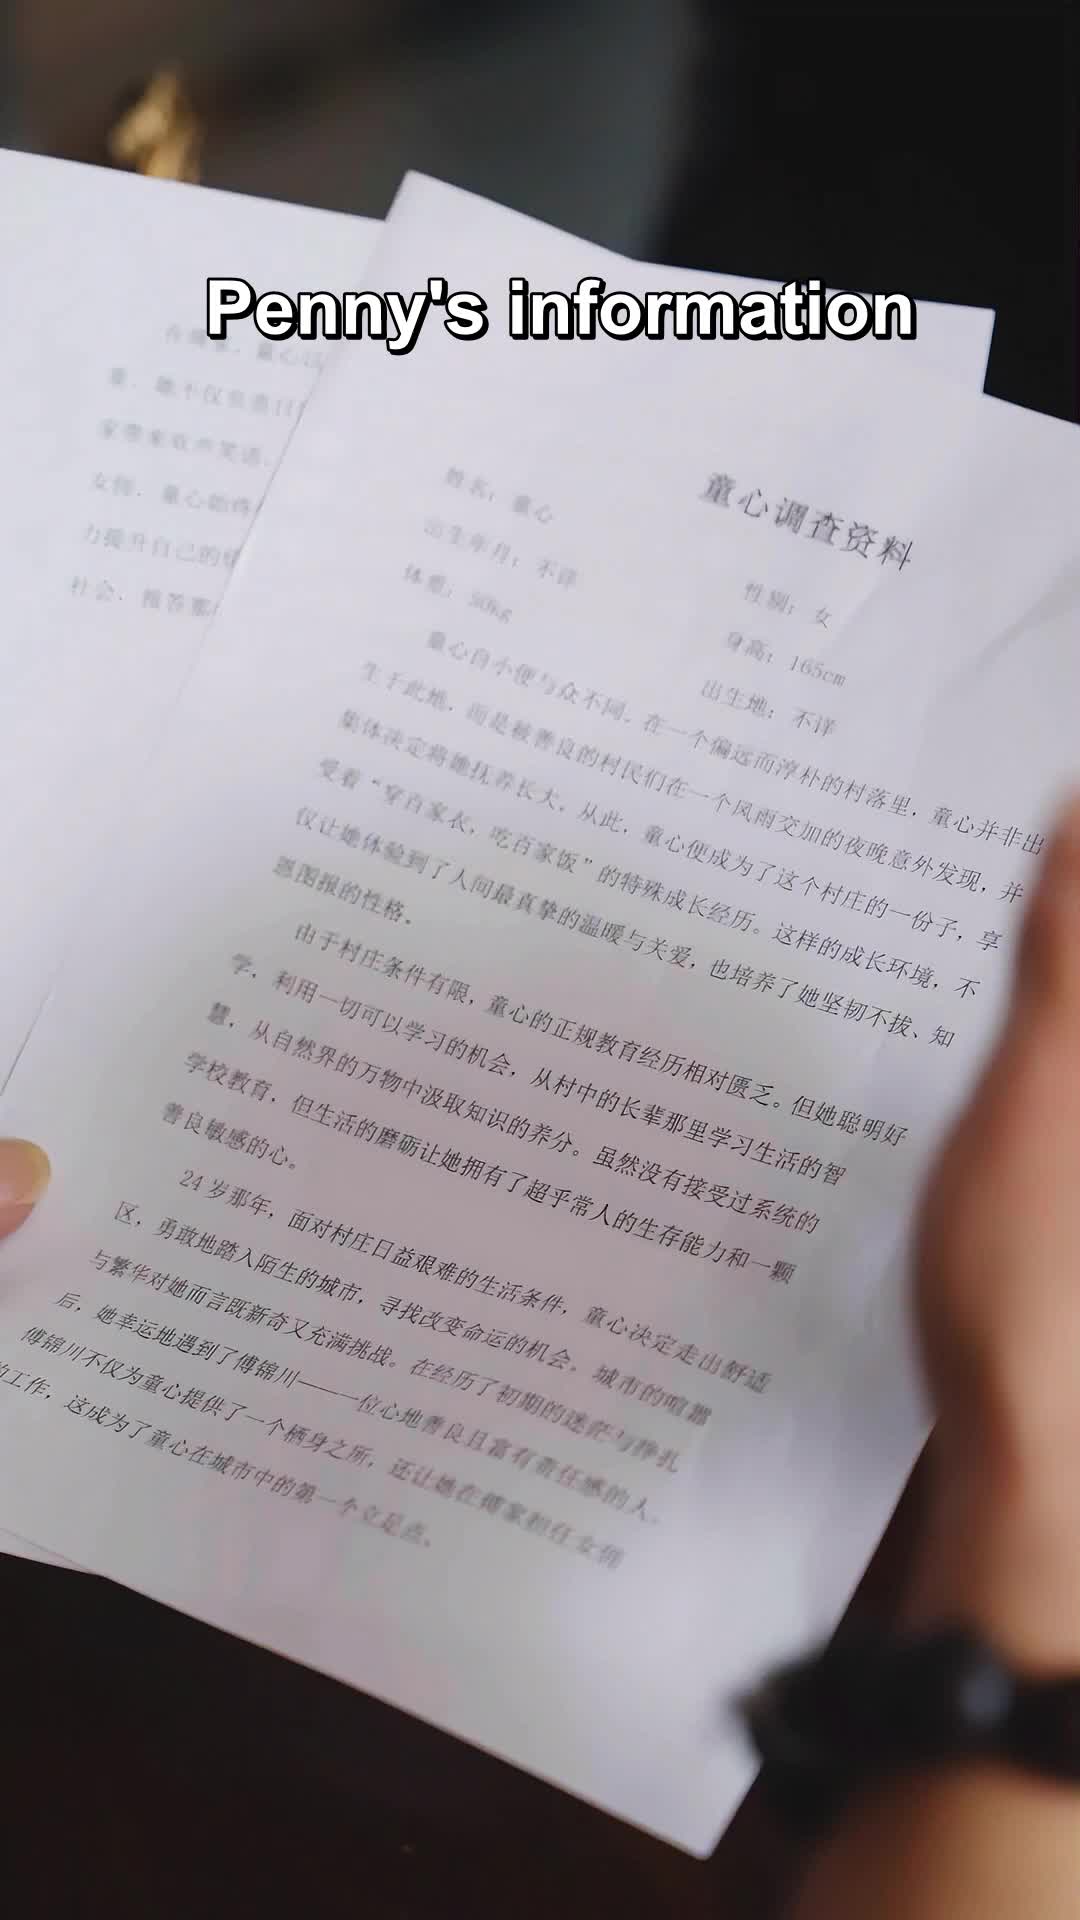 Penny's information
童心调查资料
姓名：童心
性别：女
出生年月：不详
身高：165cm
体重：50kg
出生地：不详
童心自小便与众不同。在一个偏远而淳朴的村落里，童心并非出
生于此地，而是被善良的村民们在一个风雨交加的夜晚意外发现，并
集体决定将她抚养长大。从此，童心便成为了这个村庄的一份子，享
受着“穿百家衣，吃百家饭”的特殊成长经历。这样的成长环境，不
仅让她体验到了人间最真挚的温暖与关爱，也培养了她坚韧不拔、知
恩图报的性格。
由于村庄条件有限，童心的正规教育经历相对匮乏。但她聪明好
学，利用一切可以学习的机会，从村中的长辈那里学习生活的智
慧，从自然界的万物中汲取知识的养分。虽然没有接受过系统的
学校教育，但生活的磨砺让她拥有了超乎常人的生存能力和一颗
善良敏感的心。
24 岁那年，面对村庄日益艰难的生活条件，童心决定走出舒适
区，勇敢地踏入陌生的城市，寻找改变命运的机会。城市的喧嚣
与繁华对她而言既新奇又充满挑战。在经历了初期的迷茫与挣扎
后，她幸运地遇到了傅锦川——一位心地善良且富有责任感的人。
傅锦川不仅为童心提供了一个栖身之所，还让她在傅家担任女佣
的工作，这成为了童心在城市中的第一个立足点。
家带来欢声笑语。
女佣，童心始终
力提升自己的
社会，报答那